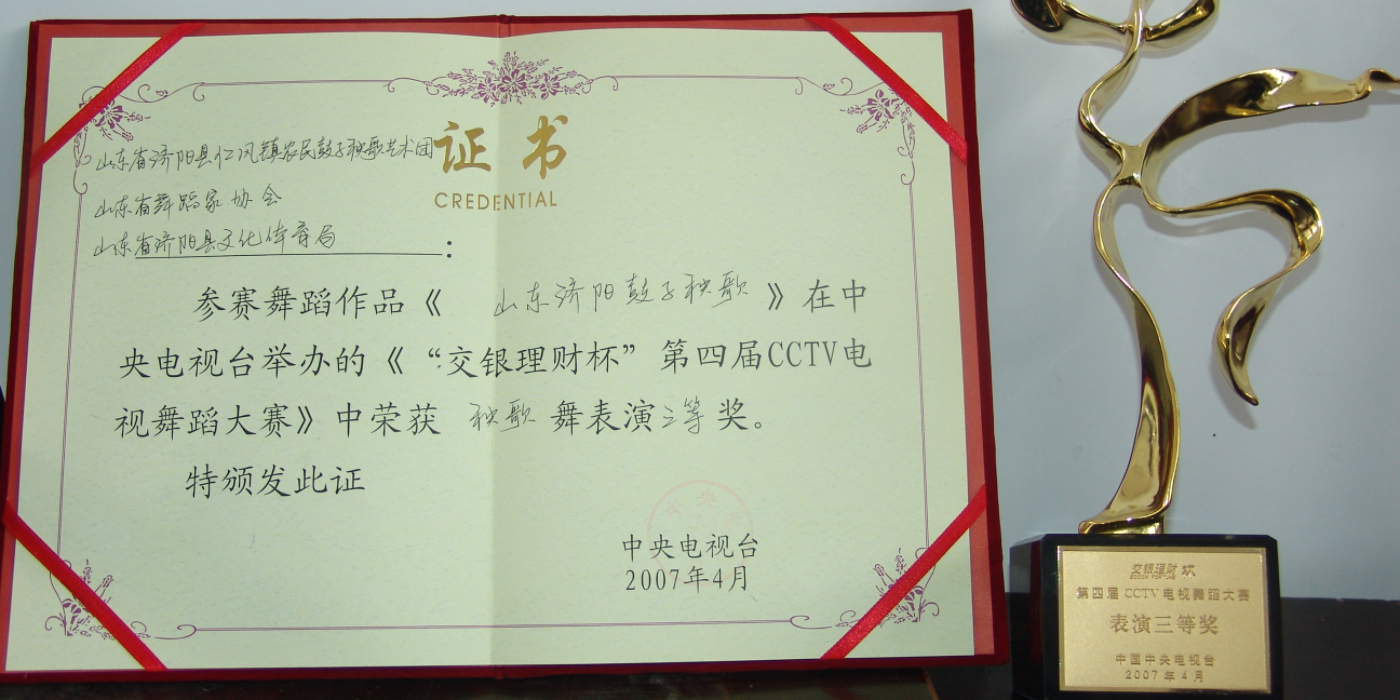 证书
CREDENTIAL
山东省济阳县仁风镇农民鼓子秧歌艺术团
山东省舞蹈家协会
山东省济阳县文化体育局：
参赛舞蹈作品《 山东济阳鼓子秧歌 》在中
央电视台举办的《“交银理财杯”第四届CCTV电
视舞蹈大赛》中荣获 秧歌 舞表演三等奖。
特颁发此证
中央电视台
2007年4月
交银理财 杯
第四届 CCTV 电视舞蹈大赛
表演三等奖
中国中央电视台
2007年4月